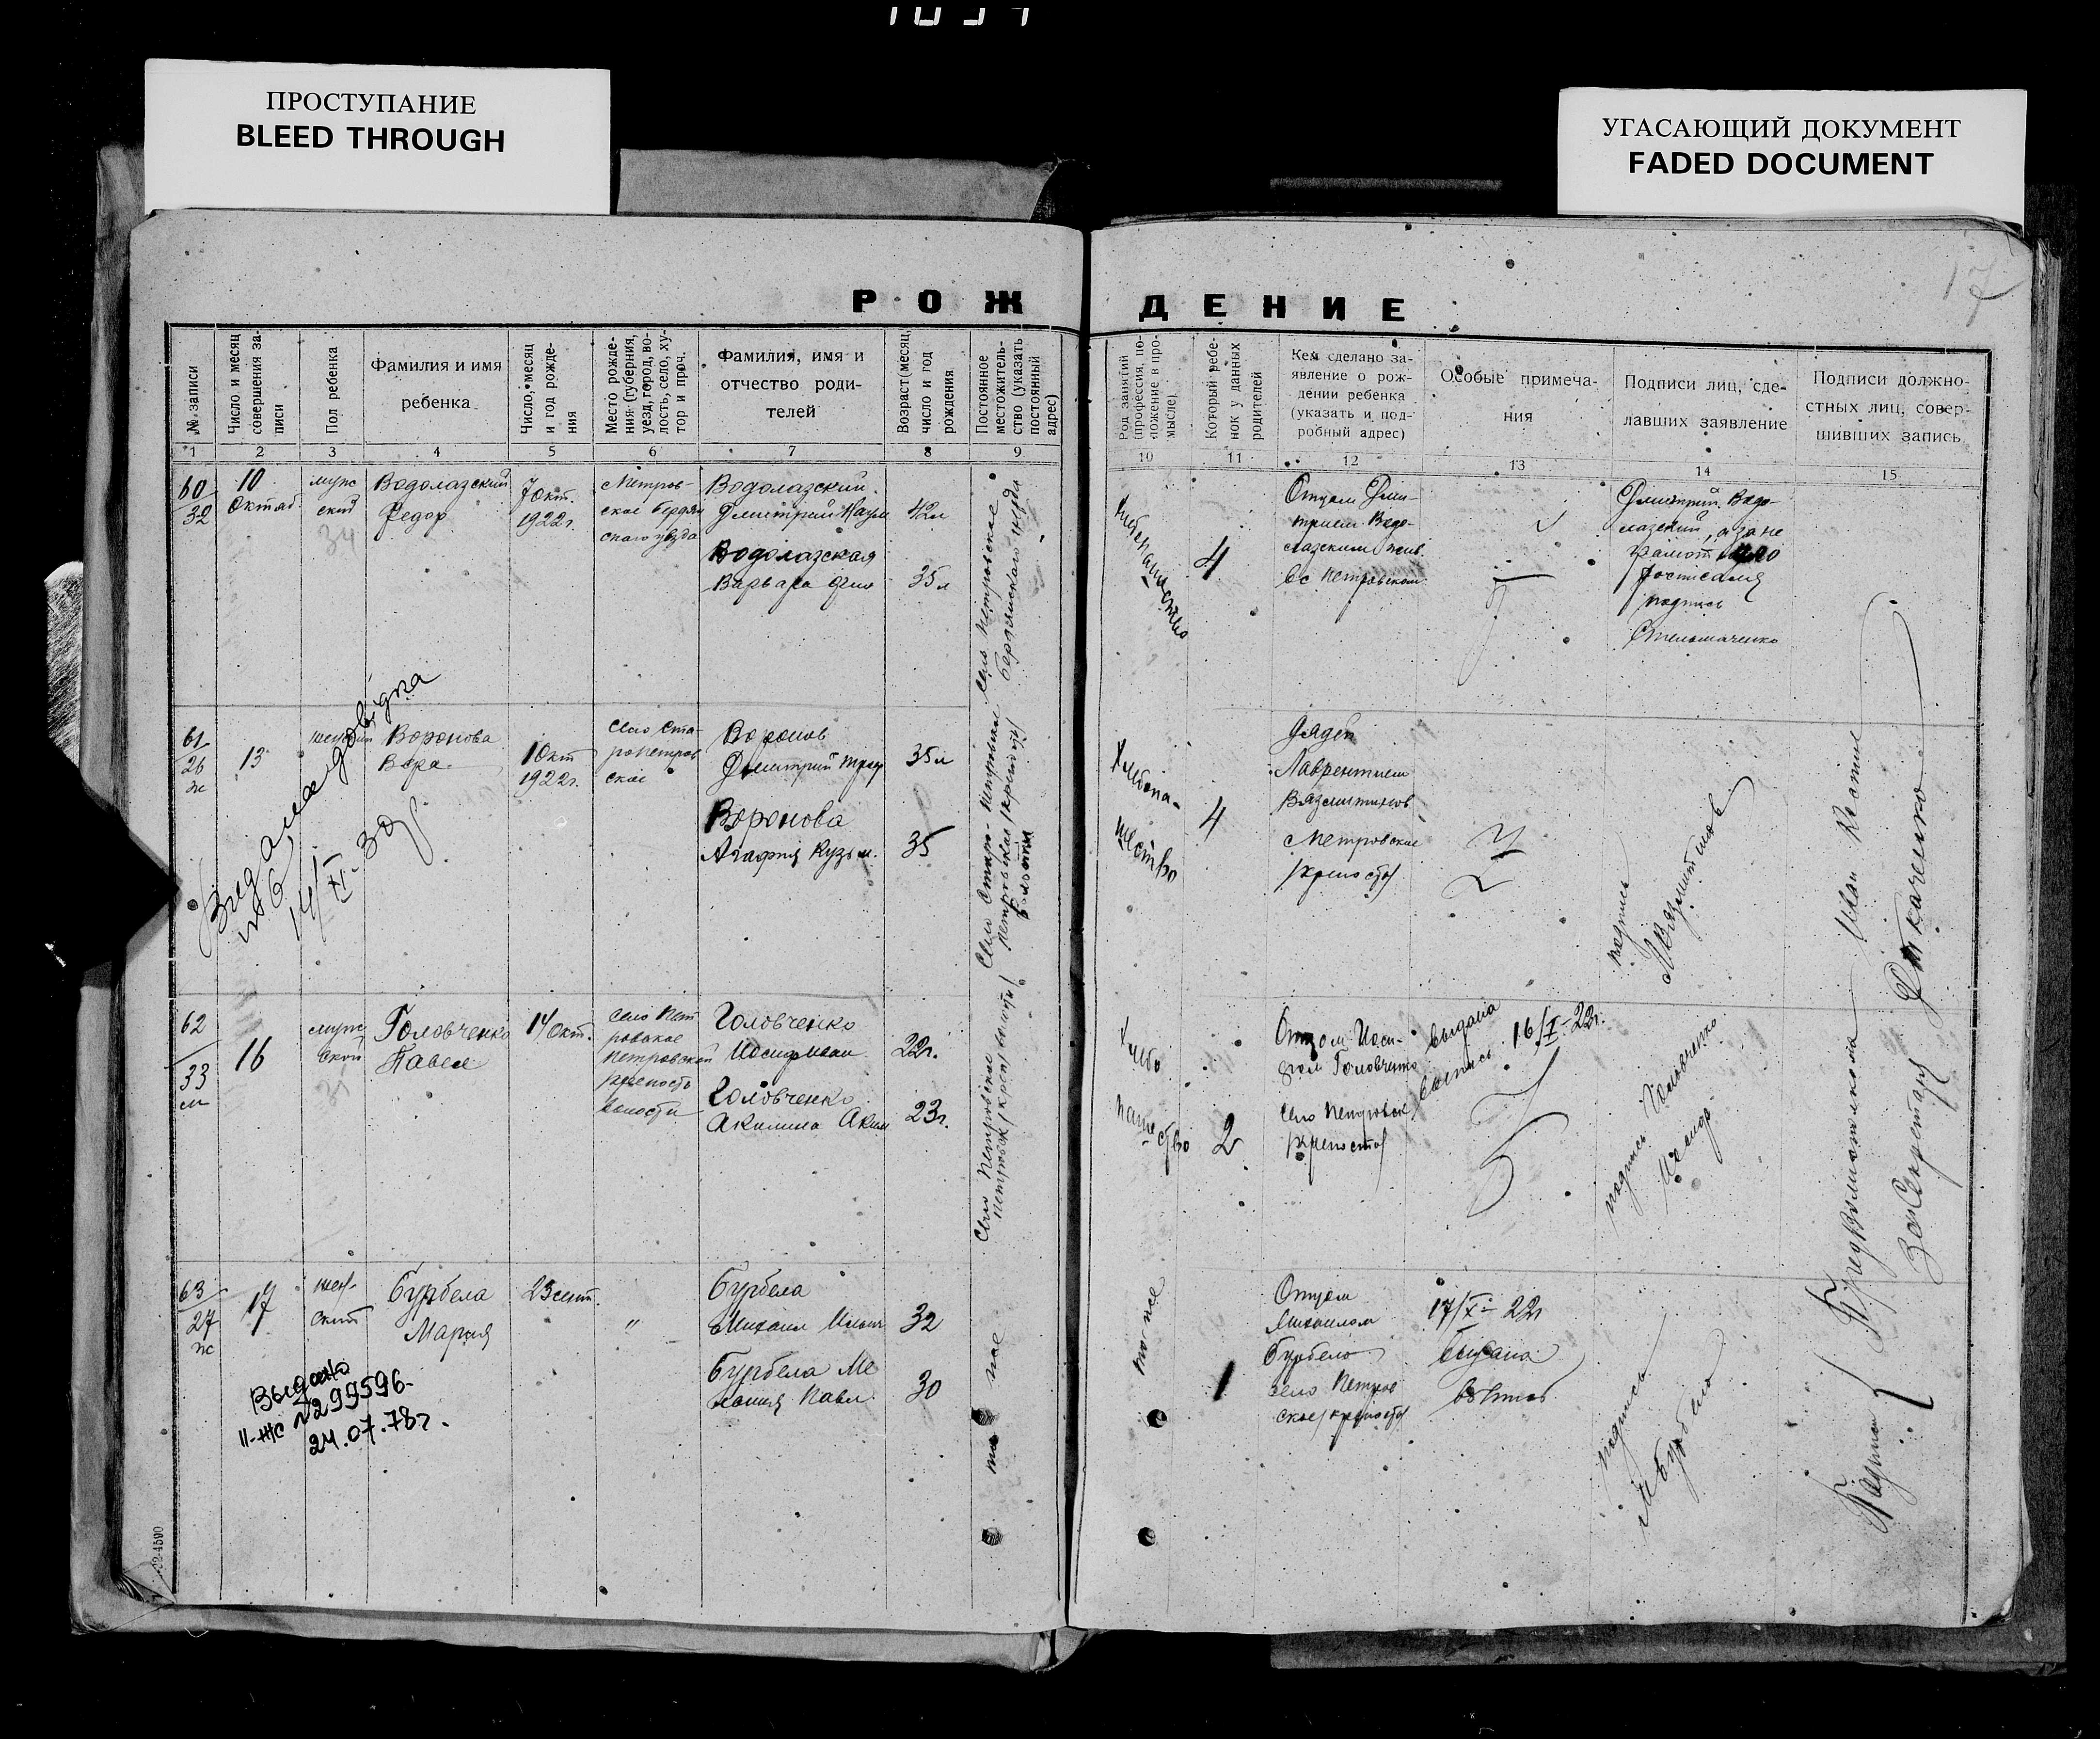 ПРОСТУПАНИЕ
BLEED THROUGH
УГАСАЮЩИЙ ДОКУМЕНТ
FADED DOCUMENT
17
РОЖДЕНИЕ
№ записи
Число и месяц
совершения за-
писи
Пол ребенка
Фамилия и имя
ребенка
Число, месяц
и год рожде-
ния
Место рожде-
ния (губерния,
уезд, город, во-
лость, село, ху-
тор и проч.
Фамилия, имя и
отчество роди-
телей
Возраст (месяц,
число и год
рождения
Постоянное
местожитель-
ство (указать
постоянный
адрес)
Род занятий
(профессия, по-
ложение в про-
мысле)
Который ребе-
нок у данных
родителей
Кем сделано за-
явление о рож-
дении ребенка
(указать и под-
робный адрес)
Особые примеча-
ния
Подписи лиц, сде-
лавших заявление
Подписи должно-
стных лиц, совер-
шивших запись
1 2 3 4 5 6 7 8 9 10 11 12 13 14 15
60
32
10
Октяб
муж
ский
34
Водолазский
Федор
7 окт.
1922г.
Петров-
ское Бердян
ского уезда
Водолазский
Дмитрий Наум
Водолазская
Варвара
42л
35л
Село Петровское
Бердянского уезда
Хлебопашество
4
Отцом Дми-
трием Водо-
лазским жив.
в с Петровском
Дмитрий Водо-
лазский, а за не
грамот его
подпись
61
26
ж
13
женский
Воронова
Вера
1 Окт
1922г.
Село Ста-
ропетров
ское
Воронов
Дмитрий
Воронова
Агафия Кузьм.
35л
35
Село Старо-Петровское
Хлебопа-
шество
4
Дядей
Лаврентием
Вязмитинов
с Петровское
/крепость/
подпись
Л Вязмитинов
Видана довідка
№ 6
14/XI-30р
62
33
м
16
муж
ской
Головченко
Павел
14 окт.
Село Пет
ровское
Петровской
крепость
волости
Головченко
Иосиф Иван
Головченко
Акилина Аким
22г.
23г.
Село Петровское
Хлебо
паше
ство
2
Отцом Иоси-
фом Головченко
село Петровское
/крепость/
выдана
выпись 16/X-22г.
подпись Головченко
Иосиф
63
27
ж
17
жен-
ский
Бурбела
Мария
23 сент.
"
Бурбела
Михаил Ильич
Бурбела Ме
лания Павл
32
30
то же
то же
1
Отцом
Михаилом
Бурбело
село Петров
ское /крепость/
17/X-22г
выдана
подпись
М Бурбело
Выдано
II-ЖС №299596
24.07.78г.
Подписи: Предволисполкома Иван Костин
Зав Секретаря Ткаченко
32-4590